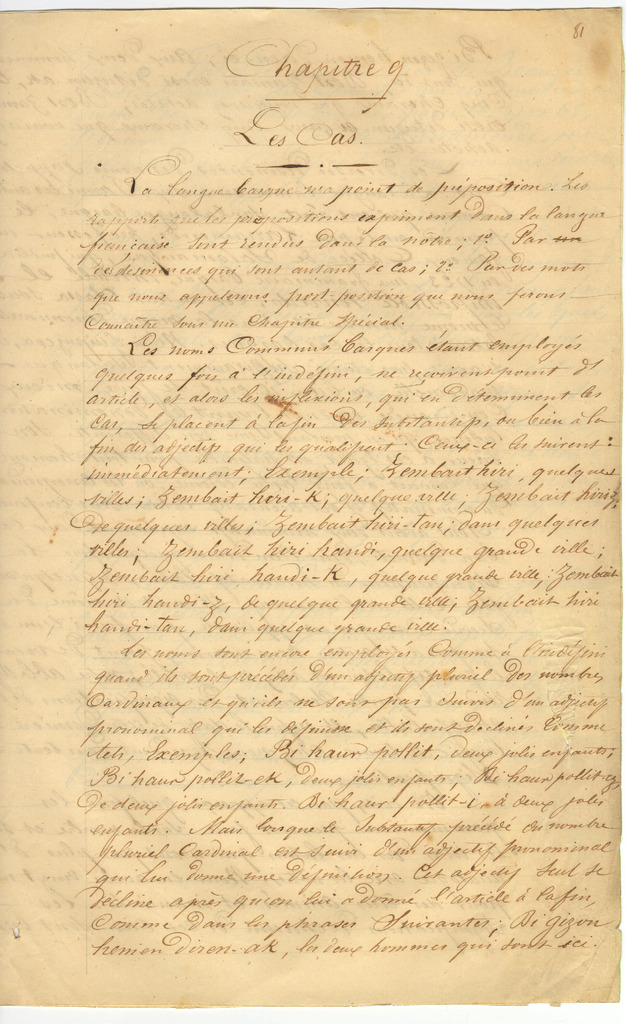 81
Chapitre 9
Les Cas.
La langue basque n'a point de préposition. Les
rapports que les prépositions expriment dans la langue
française sont rendus dans la nôtre; 1º Par
des désinences qui sont autant de cas; 2º Par des mots
que nous appelerons post-position que nous ferons
Connaître sous un Chapitre Spécial.
Les noms Communs basques étant employés
quelques fois à l'indéfini, ne reçoivent point d'
article, et alors les inflexions, qui en déterminent les
Cas, se placent à la fin des Substantifs, ou bien à la
fin des adjectifs qui les qualifient. Ceux-ci les suivent
immédiatement; Exemple; Zembait hiri, quelques
villes; Zembait hiri-K, quelque ville; Zembait hiri-z,
de quelques villes; Zembait hiri-tan, dans quelques
villes; Zembait hiri handi, quelque grande ville;
Zembait hiri handi-K, quelque grande ville; Zembait
hiri handi-z, de quelque grande ville; Zembait hiri
handi-tan, dans quelque grande ville.
Les noms sont encore employés Comme à l'indéfini
quand ils sont précédés d'un adjectif pluriel des nombres
Cardinaux et qu'ils ne sont pas suivis d'un adjectif
pronominal qui les définisse et ils sont déclinés Comme
tels, Exemples; Bi haur pollit, deux jolis enfants;
Bi haur pollit-ek, deux jolis enfants; Bi haur pollit-ez,
De deux jolis enfants. Bi haur pollit-i à deux jolis
enfants. Mais lorsque le Substantif précédé du nombre
pluriel Cardinal est suivi d'un adjectif pronominal
qui lui donne une Définition. Cet adjectif seul se
décline après qu'on lui a donné l'article à la fin,
Comme dans les phrases Suivantes; Bi gizon
hemen diren-ak, les deux hommes qui sont ici.